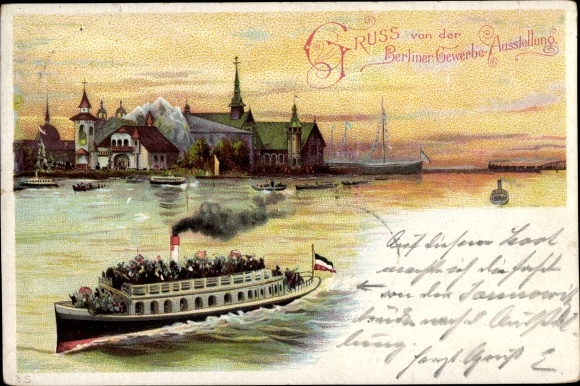 GRUSS von der
Berliner Gewerbe-Ausstellung.
Auf diesem Boot
machte ich die Fahrt
von der Jannowitz
brücke nach Ausstel
lung. Herzl. Gruß E